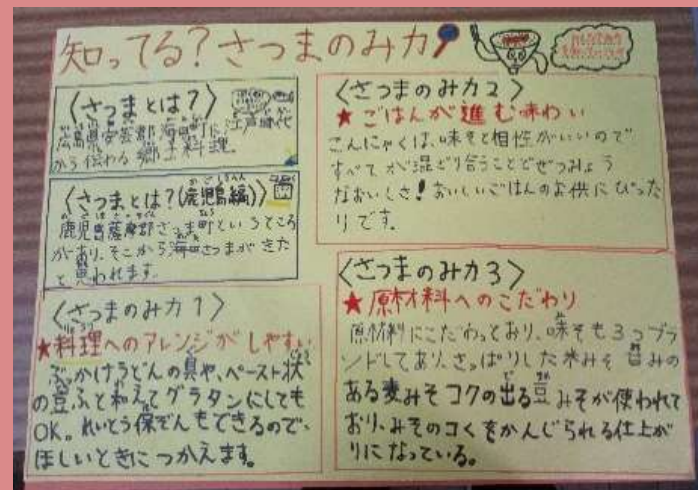 知ってる?さつまのみ力
〈さつまとは?〉
広島県安芸郡海田町に江戸時代
から伝わる郷土料理
〈さつまとは?(鹿児島編)〉
鹿児島薩摩郡さつま町というところ
があり、そこから海田さつまがきた
と思われます。
〈さつまのみ力1〉
★料理へのアレンジがしやすい
ぶっかけうどんの具や、ペースト状
の豆ふと和えてグラタンにしても
OK。れいとう保ぞんもできるので、
ほしいときにつかえます。
〈さつまのみ力2〉
★ごはんが進む味わい
こんにゃくは、味そと相性がいいので
すべてが混ざり合うことでぜつみょう
なおいしさ!おいしいごはんのお供にぴった
りです。
〈さつまのみ力3〉
★原材料へのこだわり
原材料にこだわっており、味そも3つブラ
ンドしてあり、さっぱりした米みそ 甘みの
ある麦みそ コクの出る豆みそが使われて
おり、みそのコくをかんじられる仕上が
りになっている。